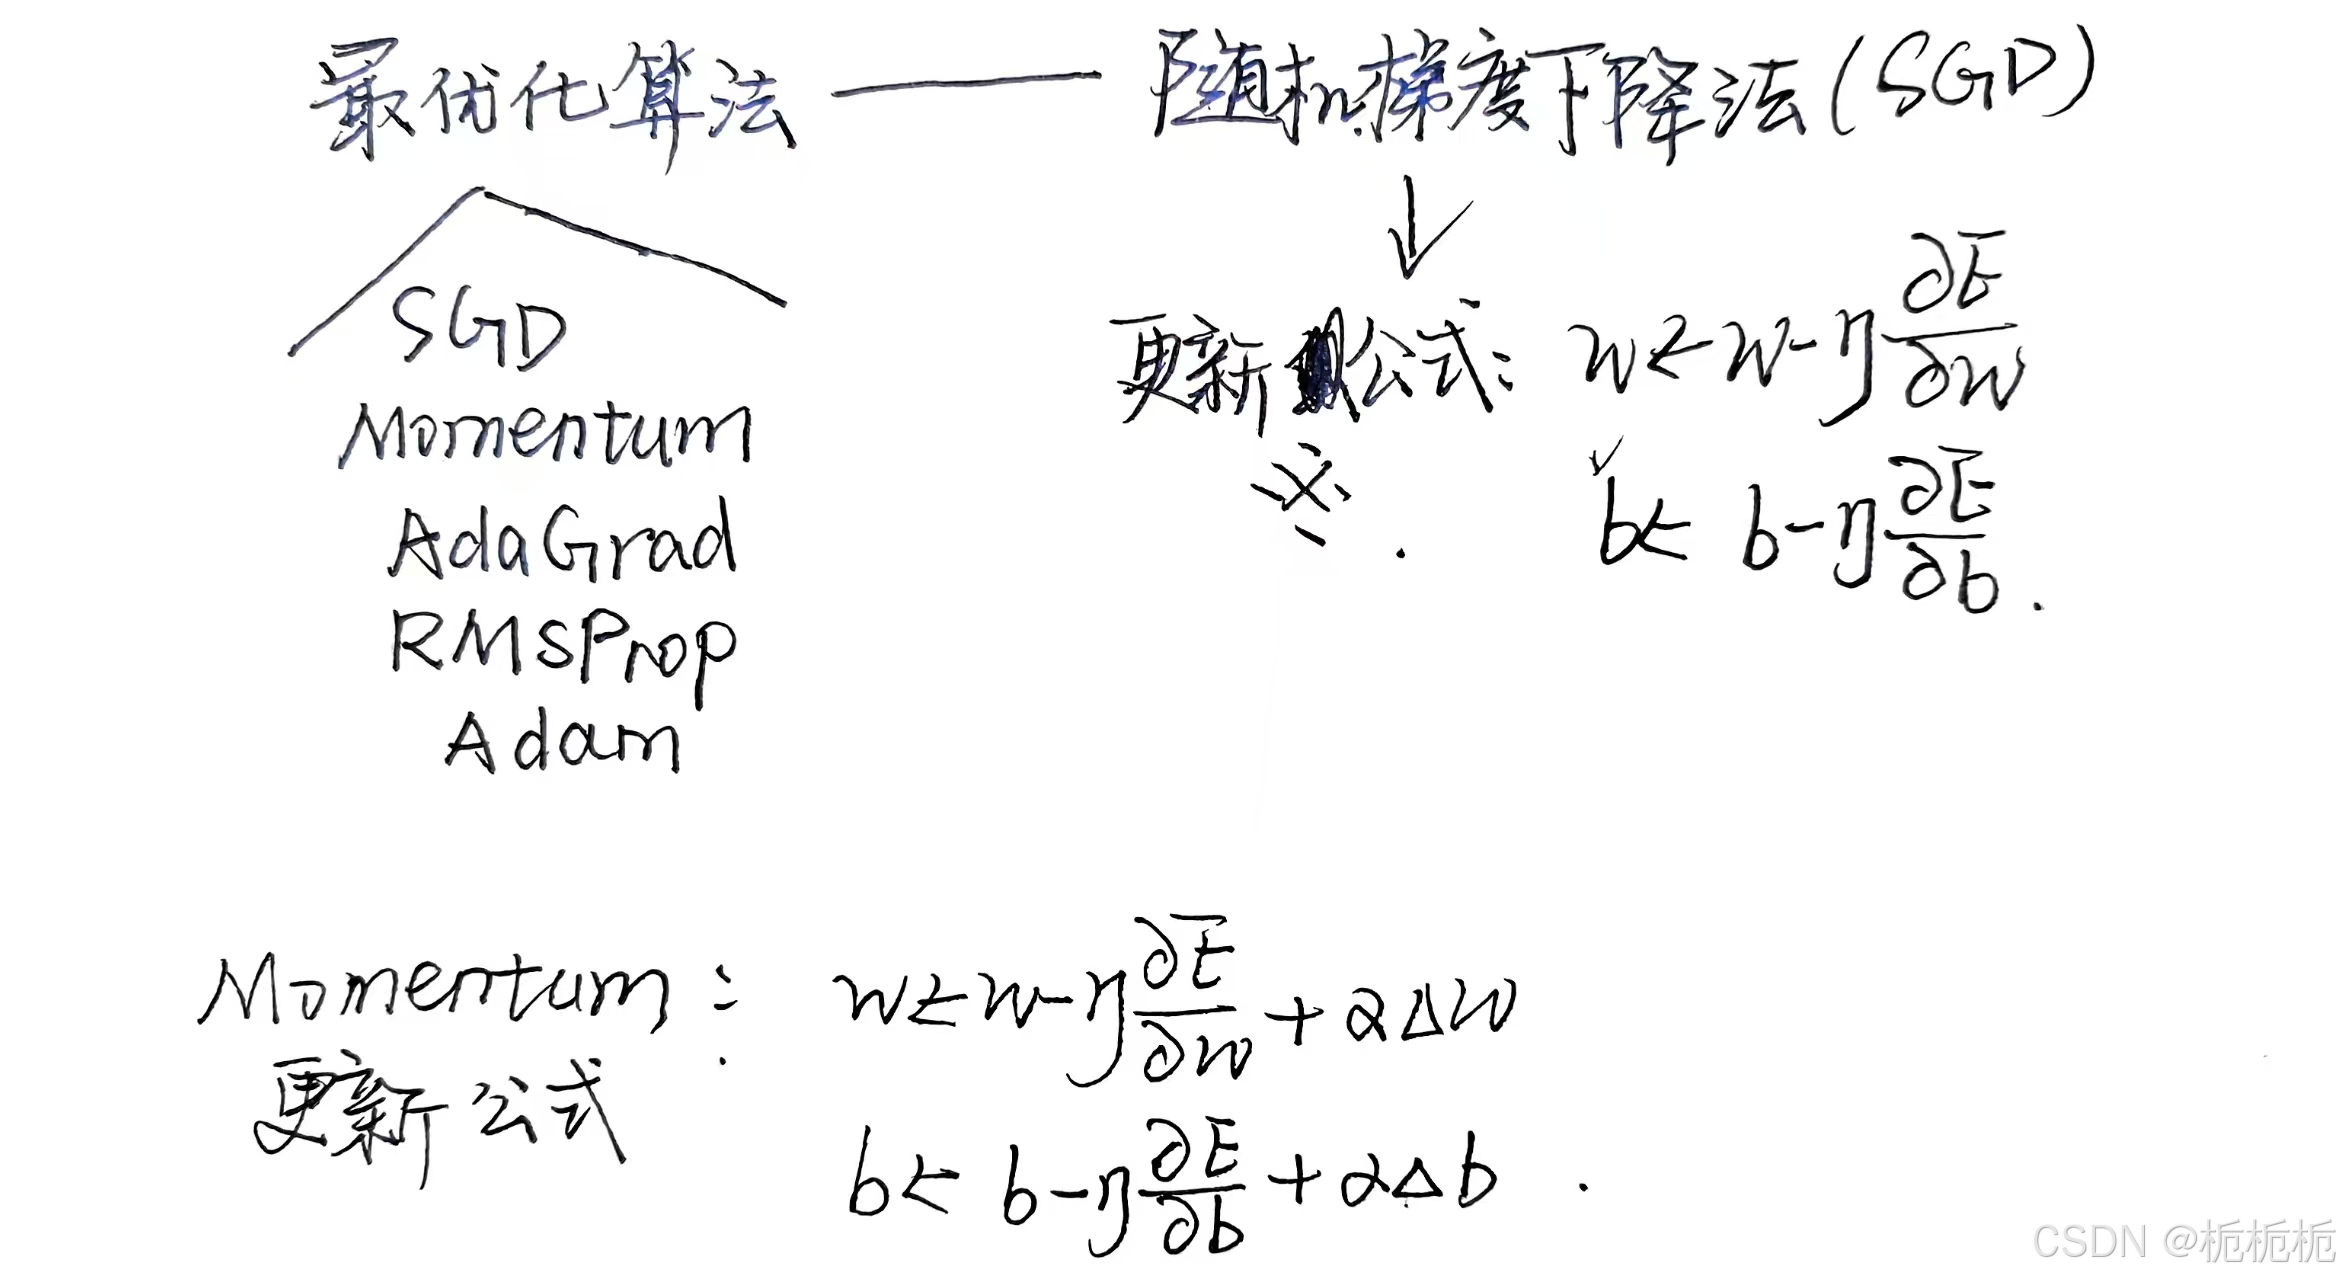 最优化算法 —— 随机梯度下降法(SGD)
SGD
Momentum
AdaGrad
RMSProp
Adam
更新公式: w ← w - η ∂E/∂w
b ← b - η ∂E/∂b.
Momentum: w ← w - η ∂E/∂w + α△w
更新公式
b ← b - η ∂E/∂b + α△b.
CSDN @栀栀栀